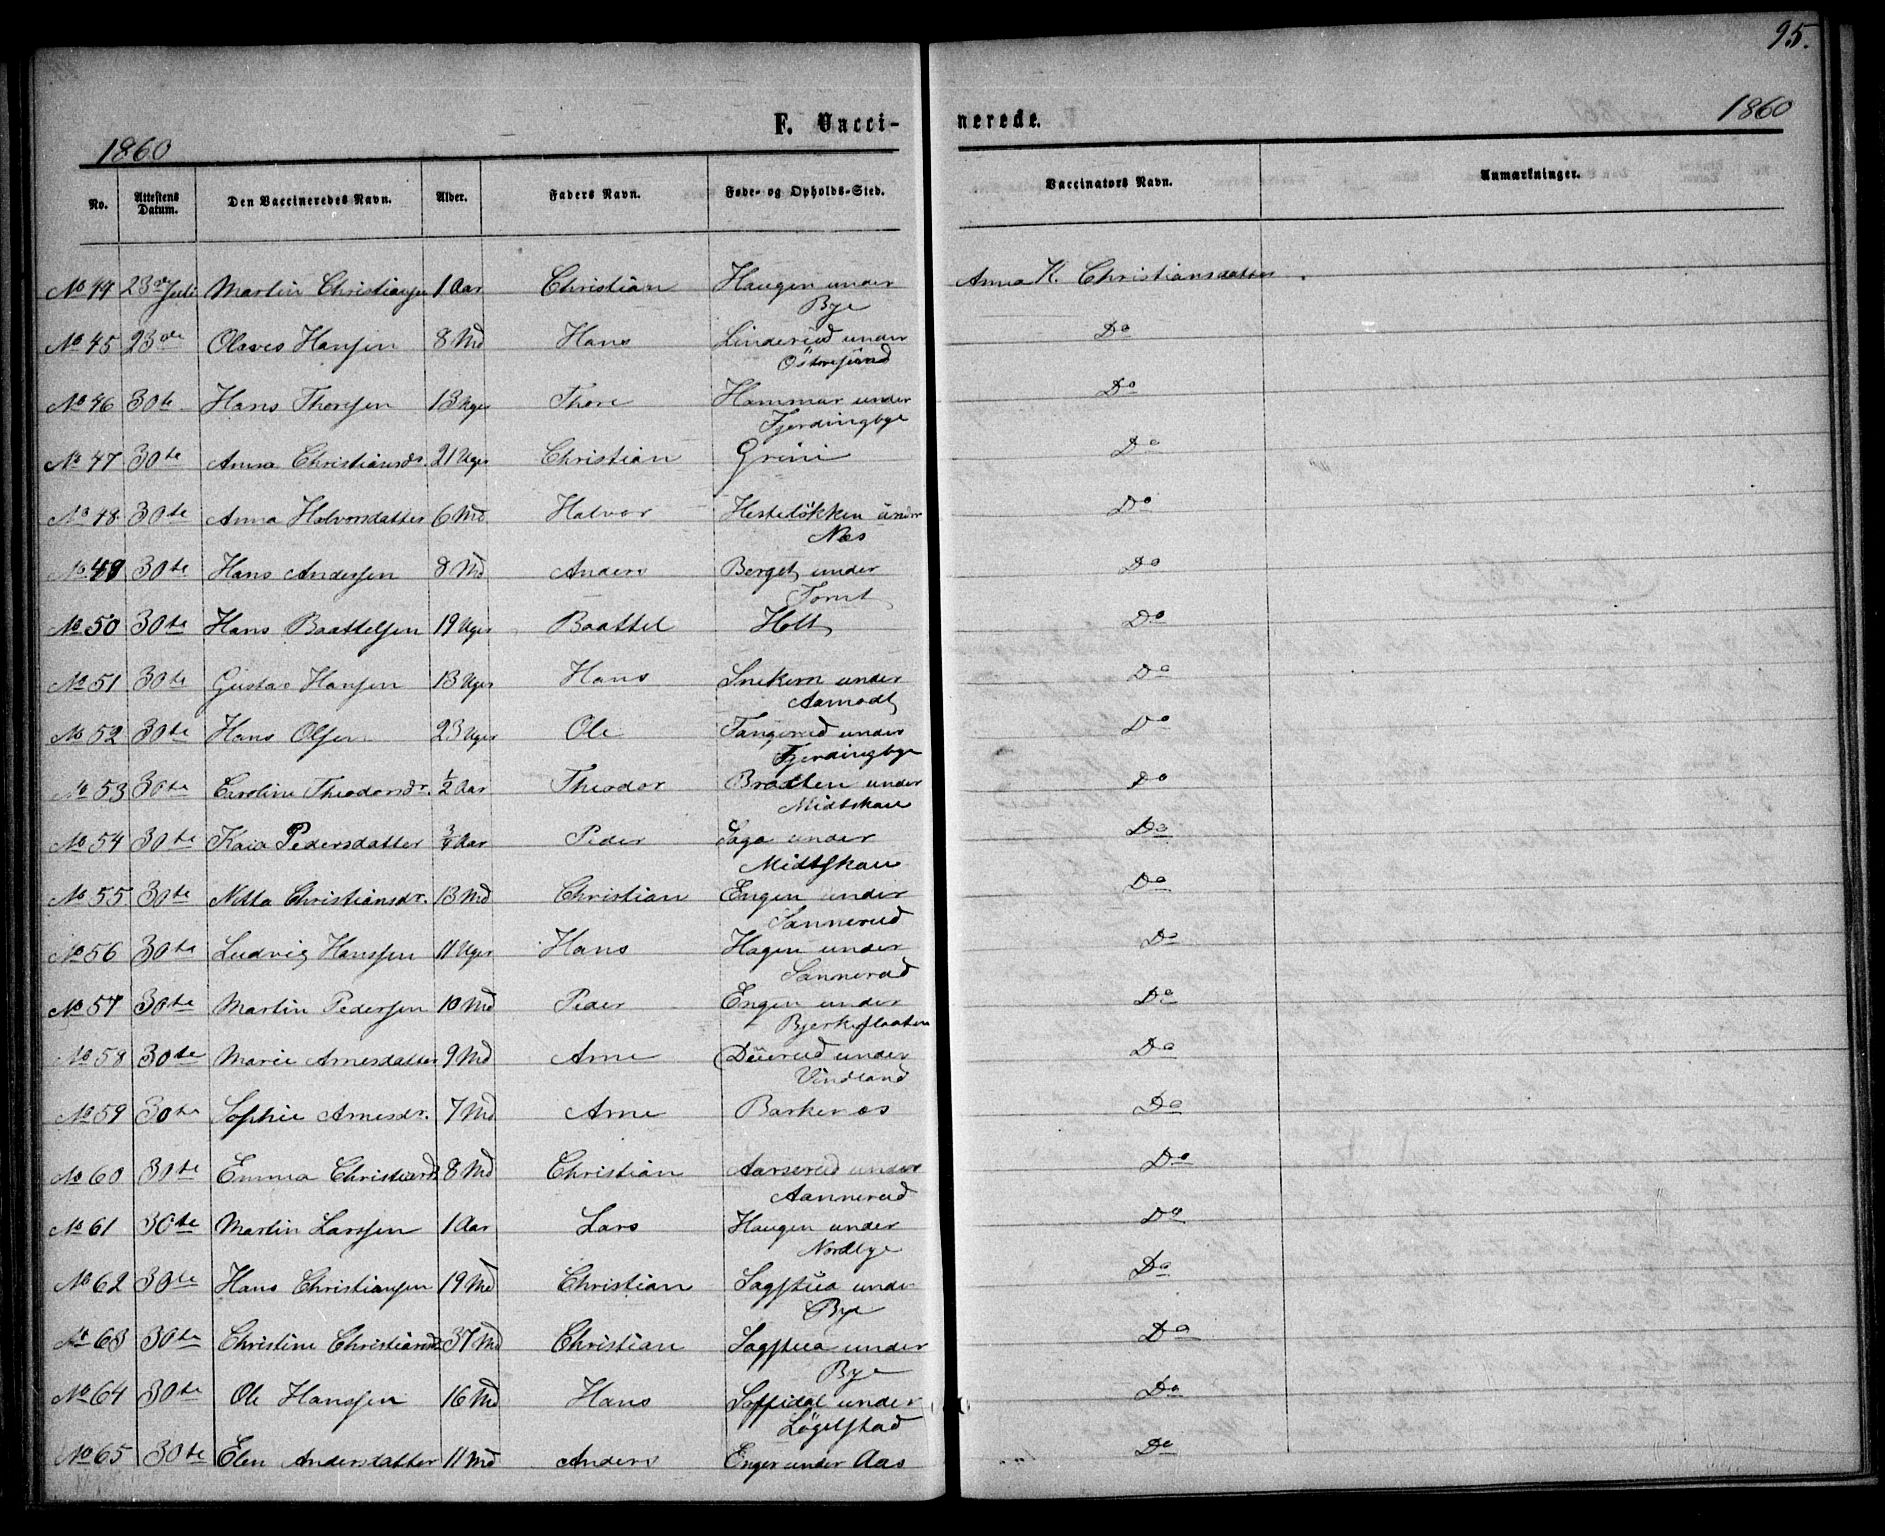 95.
1860 F. Vacci- nerede. 1860
No. Attestens Datum. Den Vaccineredes Navn. Alder. Faders Navn. Føde- og Opholds-Sted. Vaccinators Navn. Anmærkninger.
No 44 23de Juli Martin Christiansen 1 Aar Christian Haugen under Anna K. Christiansdatter
Bye
No 45 23de Olaves Hansen 8 Md Hans Linderud under Do
No 46 30te Hans Thoresen 13 Uger Thore Hammar under Do
Fjerdingbye
No 47 30te Anna Christiansdr. 21 Uger Christian Grini Do
No 48 30te Anna Halvorsdatter 6 Md Halvor Hesteløkken under Do
Næs
No 49 30te Hans Andersen 8 Md Anders Berget under Do
Tomt
No 50 30te Hans Baattelsen 19 Uger Baattel Holt Do
No 51 30te Gustav Hansen 13 Uger Hans Snekern under Do
Aamodt
No 52 30te Hans Olsen 23 Uger Ole Tangerud under Do
Fjerdingbye
No 53 30te Caroline Theodorsdr. 1/2 Aar Theodor Braaten under Do
Midtskau
No 54 30te Kaia Pedersdatter 3/4 Aar Peder Saga under Do
Midtskau
No 55 30te Netta Christiansdr. 13 Md Christian Engen under Do
Sannerud
No 56 30te Ludvig Hanssen 11 Uger Hans Hagen under Do
Sannerud
No 57 30te Martin Pedersen 10 Md Peder Engen under Do
Bjerkeflaaten
No 58 30te Marie Arnesdatter 9 Md Arne Duerud under Do
Vindland
No 59 30te Sophie Arnesdr. 7 Md Arne Barkenæs Do
No 60 30te Emma Christiansd 8 Md Christian Aarserud under Do
Aannerud
No 61 30te Martin Larssen 1 Aar Lars Haugen under Do
Nordbye
No 62 30te Hans Christiansen 19 Md Christian Sagstua under Do
Bye
No 63 30te Christine Christiansd 37 Md Christian Sagstua under Do
Bye
No 64 30te Ole Hanssen 16 Md Hans Soffidal under Do
Løgelstad
No 65 30te Elen Andersdatter 11 Md Anders Enger under Aas Do